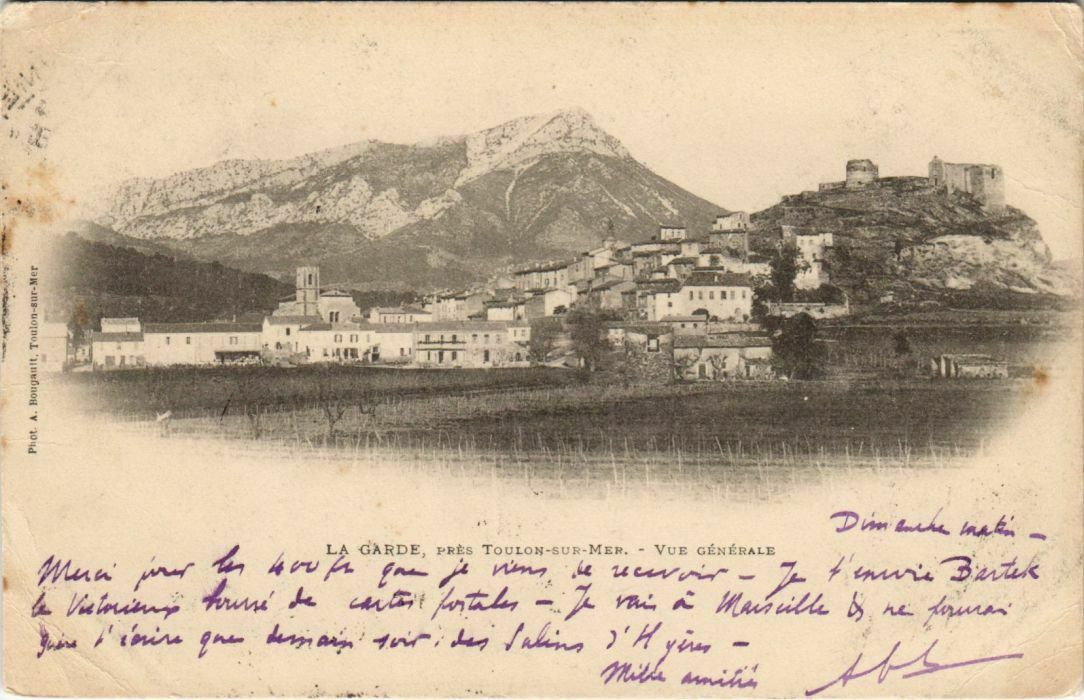 Phot. A. Bougault, Toulon-sur-Mer.
Dimanche matin –
LA GARDE, PRÈS TOULON-SUR-MER. - VUE GÉNÉRALE
Merci pour les 400 fr que je viens de recevoir – Je t'envoie Bartek
le Victorieux bourré de cartes postales – Je vais à Marseille & ne pourrai
guère t'écrire que demain soir des Salins d'Hyères –
Mille amitiés